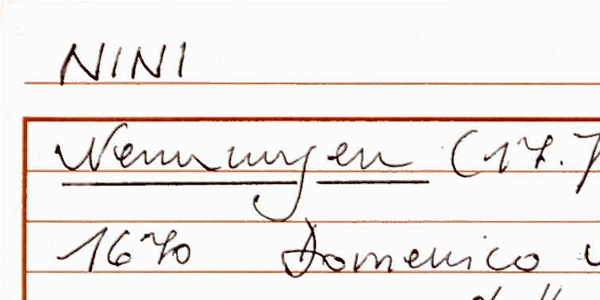 NINI
Nennungen (17.
1670 Domenico